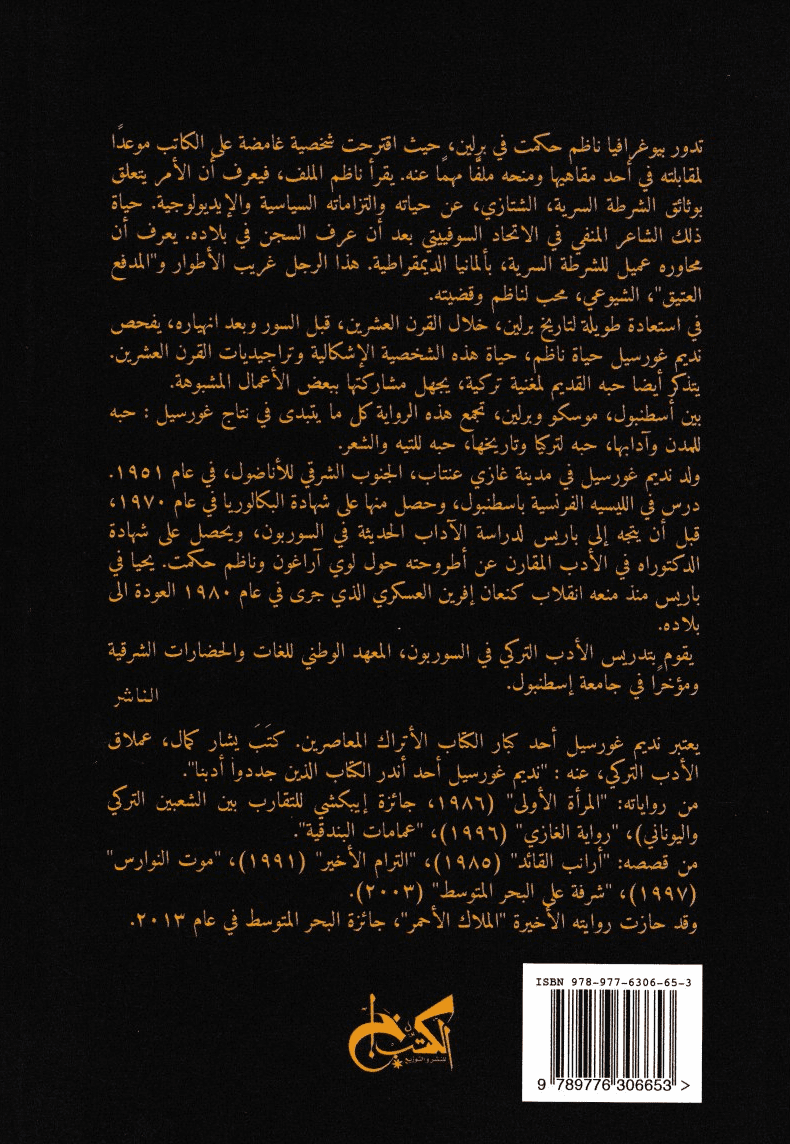 تدور بيوغرافيا ناظم حكمت في برلين، حيث اقترحت شخصية غامضة على الكاتب موعدًا
لمقابلته في أحد مقاهيها ومنحه ملفًّا مهمًّا عنه. يقرأ ناظم الملف، فيعرف أن الأمر يتعلق
بوثائق الشرطة السرية، الشتازي، عن حياته والتزاماته السياسية والإيديولوجية. حياة
ذلك الشاعر المنفي في الاتحاد السوفييتي بعد أن عرف السجن في بلاده. يعرف أن
محاوره عميل للشرطة السرية، بألمانيا الديمقراطية. هذا الرجل غريب الأطوار و"المدفع
العتيق"، الشيوعي، محب لناظم وقضيته.
في استعادة طويلة لتاريخ برلين، خلال القرن العشرين، قبل السور وبعد انهياره، يفحص
نديم غورسيل حياة ناظم، حياة هذه الشخصية الإشكالية وتراجيديات القرن العشرين.
يتذكر أيضا حبه القديم لمغنية تركية، يجهل مشاركتها ببعض الأعمال المشبوهة.
بين أسطنبول، موسكو وبرلين، تجمع هذه الرواية كل ما يتبدى في نتاج غورسيل : حبه
للمدن وآدابها، حبه لتركيا وتاريخها، حبه للتيه والشعر.
ولد نديم غورسيل في مدينة غازي عنتاب، الجنوب الشرقي للأناضول، في عام ١٩٥١.
درس في الليسيه الفرنسية باسطنبول، وحصل منها على شهادة البكالوريا في عام ١٩٧٠،
قبل أن يتجه إلى باريس لدراسة الآداب الحديثة في السوربون، ويحصل على شهادة
الدكتوراه في الأدب المقارن عن أطروحته حول لوي آراغون وناظم حكمت. يحيا في
باريس منذ منعه انقلاب كنعان إفرين العسكري الذي جرى في عام ١٩٨٠ العودة الى
بلاده.
يقوم بتدريس الأدب التركي في السوربون، المعهد الوطني للغات والحضارات الشرقية
ومؤخرًا في جامعة إسطنبول.
الناشر
يعتبر نديم غورسيل أحد كبار الكتاب الأتراك المعاصرين. كتَبَ يشار كمال، عملاق
الأدب التركي، عنه : "نديم غورسيل أحد أندر الكتاب الذين جددوا أدبنا".
من رواياته: "المرأة الأولى" (١٩٨٦، جائزة إيبكشي للتقارب بين الشعبين التركي
واليوناني)، "رواية الغازي" (١٩٩٦)، "عمامات البندقية".
من قصصه: "أرانب القائد" (١٩٨٥)، "الترام الأخير" (١٩٩١)، "موت النوارس"
(١٩٩٧)، "شرفة على البحر المتوسط" (٢٠٠٣).
وقد حازت روايته الأخيرة "الملاك الأحمر"، جائزة البحر المتوسط في عام ٢٠١٣.
ISBN 978-977-6306-65-3
9 789776 306653 >
الكتب خان
للنشر والتوزيع